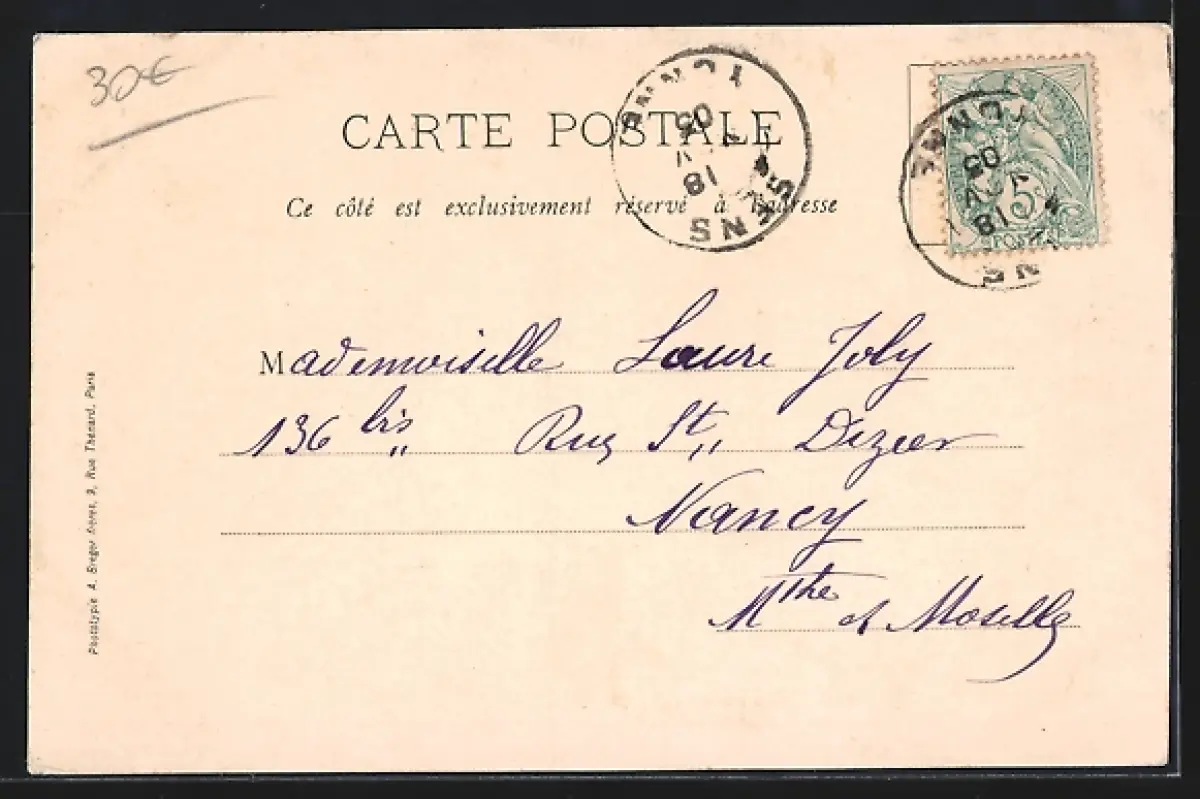 30€
CARTE POSTALE
Ce côté est exclusivement réservé à l'adresse
YONNE
SENS
18
05
YONNE
18
05
5
POSTES
Mademoiselle Laure Joly
136 bis Rue St Dizier
Nancy
Mthe et Moselle
Phototypie A. Breger frères, 9, Rue Thénard, Paris